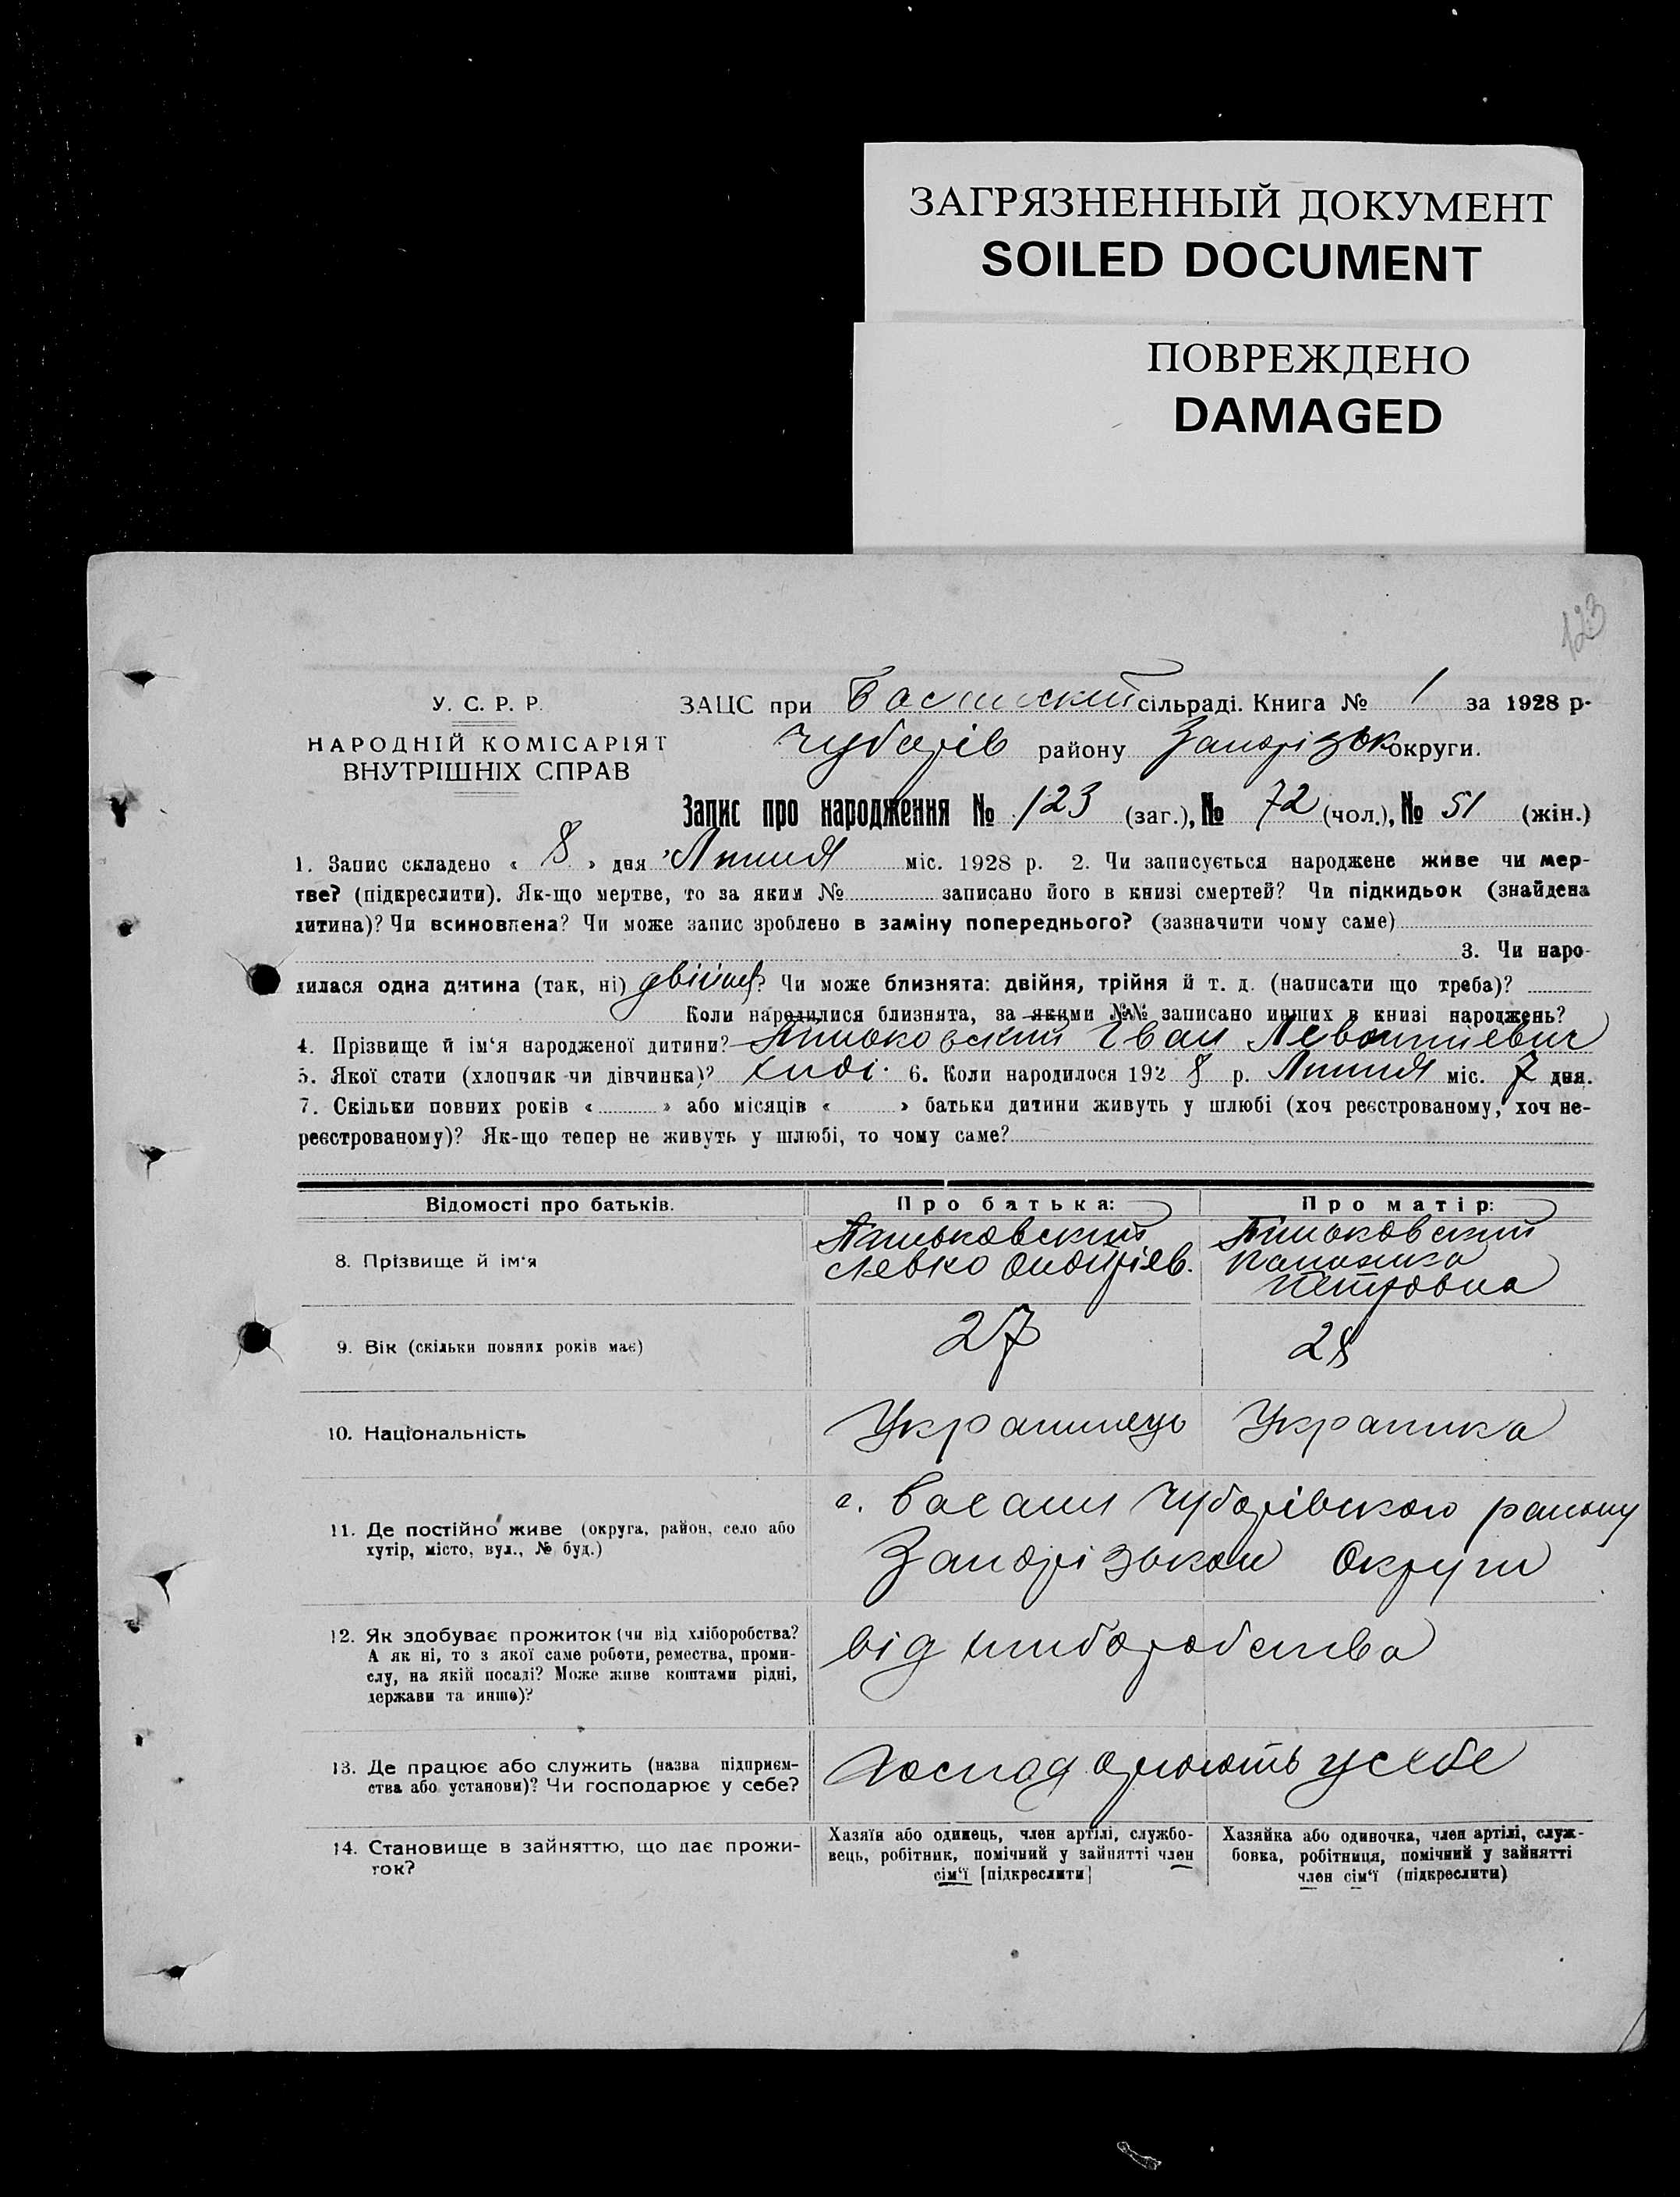 ЗАГРЯЗНЕННЫЙ ДОКУМЕНТ
SOILED DOCUMENT
ПОВРЕЖДЕНО
DAMAGED
123
У. С. Р. Р.
НАРОДНІЙ КОМІСАРІЯТ
ВНУТРІШНІХ СПРАВ
ЗАЦС при сільраді. Книга № 1 за 1928 р.
Чубарів району Запорізьк округи.
Запис про народження № 123 (заг.), № 72 (чол.), № 51 (жін.)
1. Запис складено « 8 » дня Липня міс. 1928 р. 2. Чи записується народжене живе чи мер-
тве? (підкреслити). Як-що мертве, то за яким № записано його в книзі смертей? Чи підкидьок (знайдена
дитина)? Чи всиновлена? Чи може запис зроблено в заміну попереднього? (зазначити чому саме)
3. Чи наро-
дилася одна дитина (так, ні) ? Чи може близнята: двійня, трійня й т. д. (написати що треба)?
Коли народилися близнята, за якими №№ записано инших в книзі народжень?
4. Прізвище й ім'я народженої дитини? Іван
5. Якої стати (хлопчик чи дівчинка)? 6. Коли народилося 192 8 р. Липня міс. 7 дня.
7. Скільки повних років « » або місяців « » батьки дитини живуть у шлюбі (хоч реєстрованому, хоч не-
реєстрованому)? Як-що тепер не живуть у шлюбі, то чому саме?
Відомості про батьків. Про батька: Про матір:
8. Прізвище й ім'я
Левко Андріїв.
Петровна
9. Вік (скільки повних років має) 27 28
10. Національність Українець Українка
11. Де постійно живе (округа, район, село або
хутір, місто, вул., № буд.)
с. Басань Чубарівського району
Запорізькой Округи
12. Як здобуває прожиток (чи від хліборобства?
А як ні, то з якої саме роботи, ремества, проми-
слу, на якій посаді? Може живе коштами рідні,
держави та инше)?
від хлиборобства
13. Де працює або служить (назва підприєм-
ства або установи)? Чи господарює у себе?
Господарюють у себе
14. Становище в зайняттю, що дає прожи-
ток?
Хазяїн або одинець, член артілі, службо-
вець, робітник, помічний у зайнятті член
сім'ї [підкреслити]
Хазяйка або одиночка, член артілі, служ-
бовка, робітниця, помічний у зайнятті
член сім'ї (підкреслити)